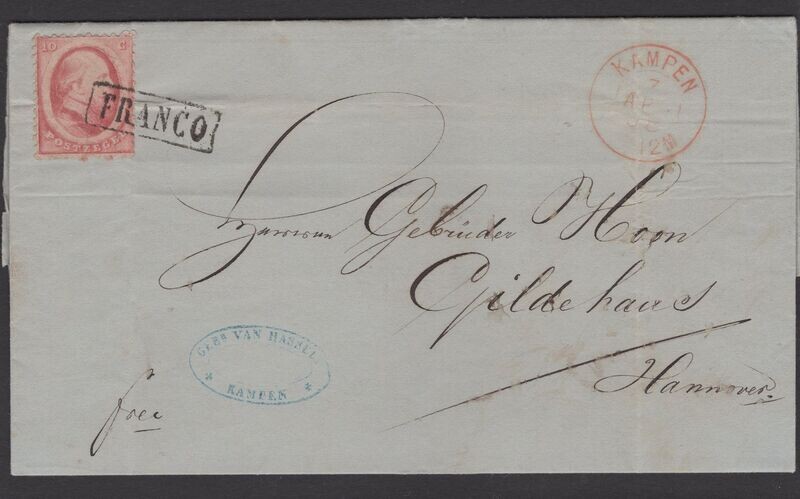 10 C
POSTZEGEL
FRANCO
KAMPEN
7
12M
Gebrüder Hoon
Gildehaus
Hannover.
GEBR VAN HASSELT
KAMPEN
free